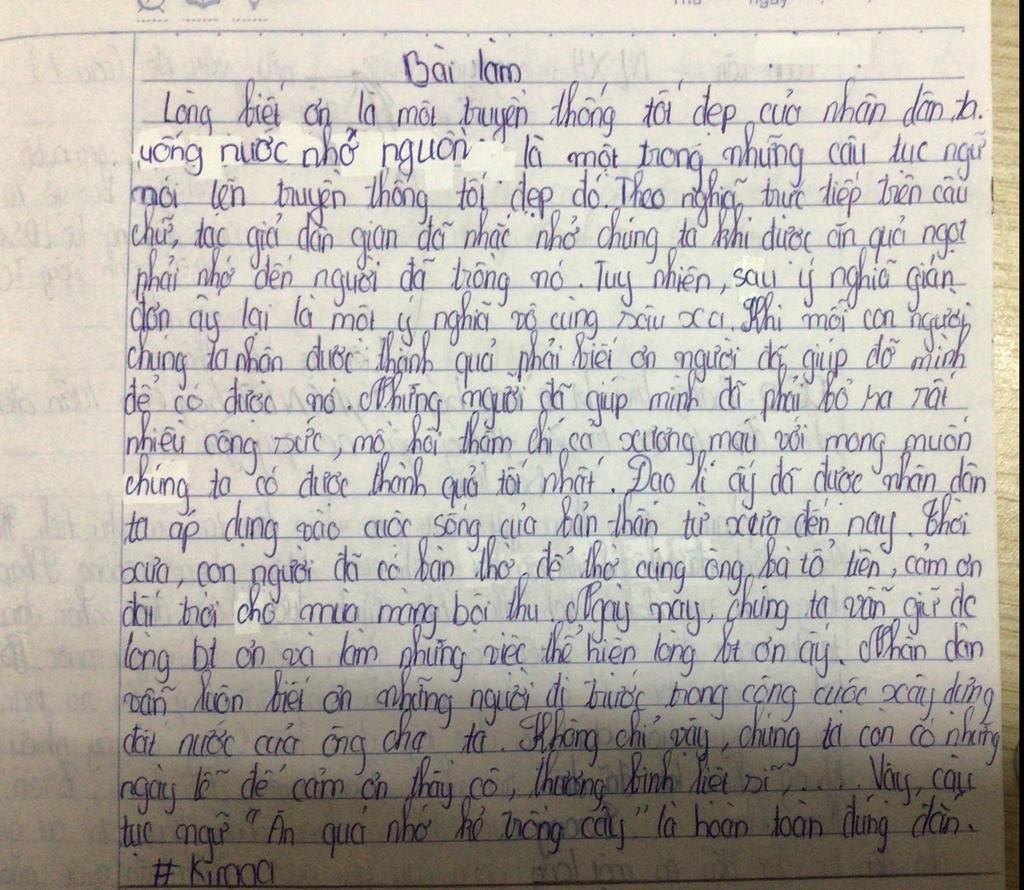 Bài làm
Lòng biết ơn là một truyền thống tốt đẹp của nhân dân ta.
"uống nước nhớ nguồn" là một trong những câu tục ngữ
nói lên truyền thống tốt đẹp đó. Theo nghĩa trực tiếp trên câu
chữ, tác giả dân gian đã nhắc nhở chúng ta khi được ăn quả ngọt
phải nhớ đến người đã trồng nó. Tuy nhiên, sau ý nghĩa giản
đơn ấy lại là một ý nghĩa vô cùng sâu xa. Khi mỗi con người
chúng ta nhận được thành quả phải biết ơn người đã giúp đỡ mình
để có được nó. Những người đã giúp mình đã phải bỏ ra rất
nhiều công sức, mồ hôi thậm chí cả xương máu với mong muốn
chúng ta có được thành quả tốt nhất. Đạo lí ấy đã được nhân dân
ta áp dụng vào cuộc sống của bản thân từ xưa đến nay. Thời
xưa, con người đã có bàn thờ để thờ cúng ông bà tổ tiên, cảm ơn
đất trời cho mùa màng bội thu. Ngày nay, chúng ta vẫn giữ đc
lòng bt ơn và làm những việc thể hiện lòng bt ơn ấy. Nhân dân
vẫn luôn biết ơn những người đi trước trong công cuộc xây dựng
đất nước của ông cha ta. Không chỉ vậy, chúng ta còn có những
ngày lễ để cảm ơn thầy cô, thương binh liệt sĩ,.... Vậy, câu
tục ngữ "Ăn quả nhớ kẻ trồng cây" là hoàn toàn đúng đắn.